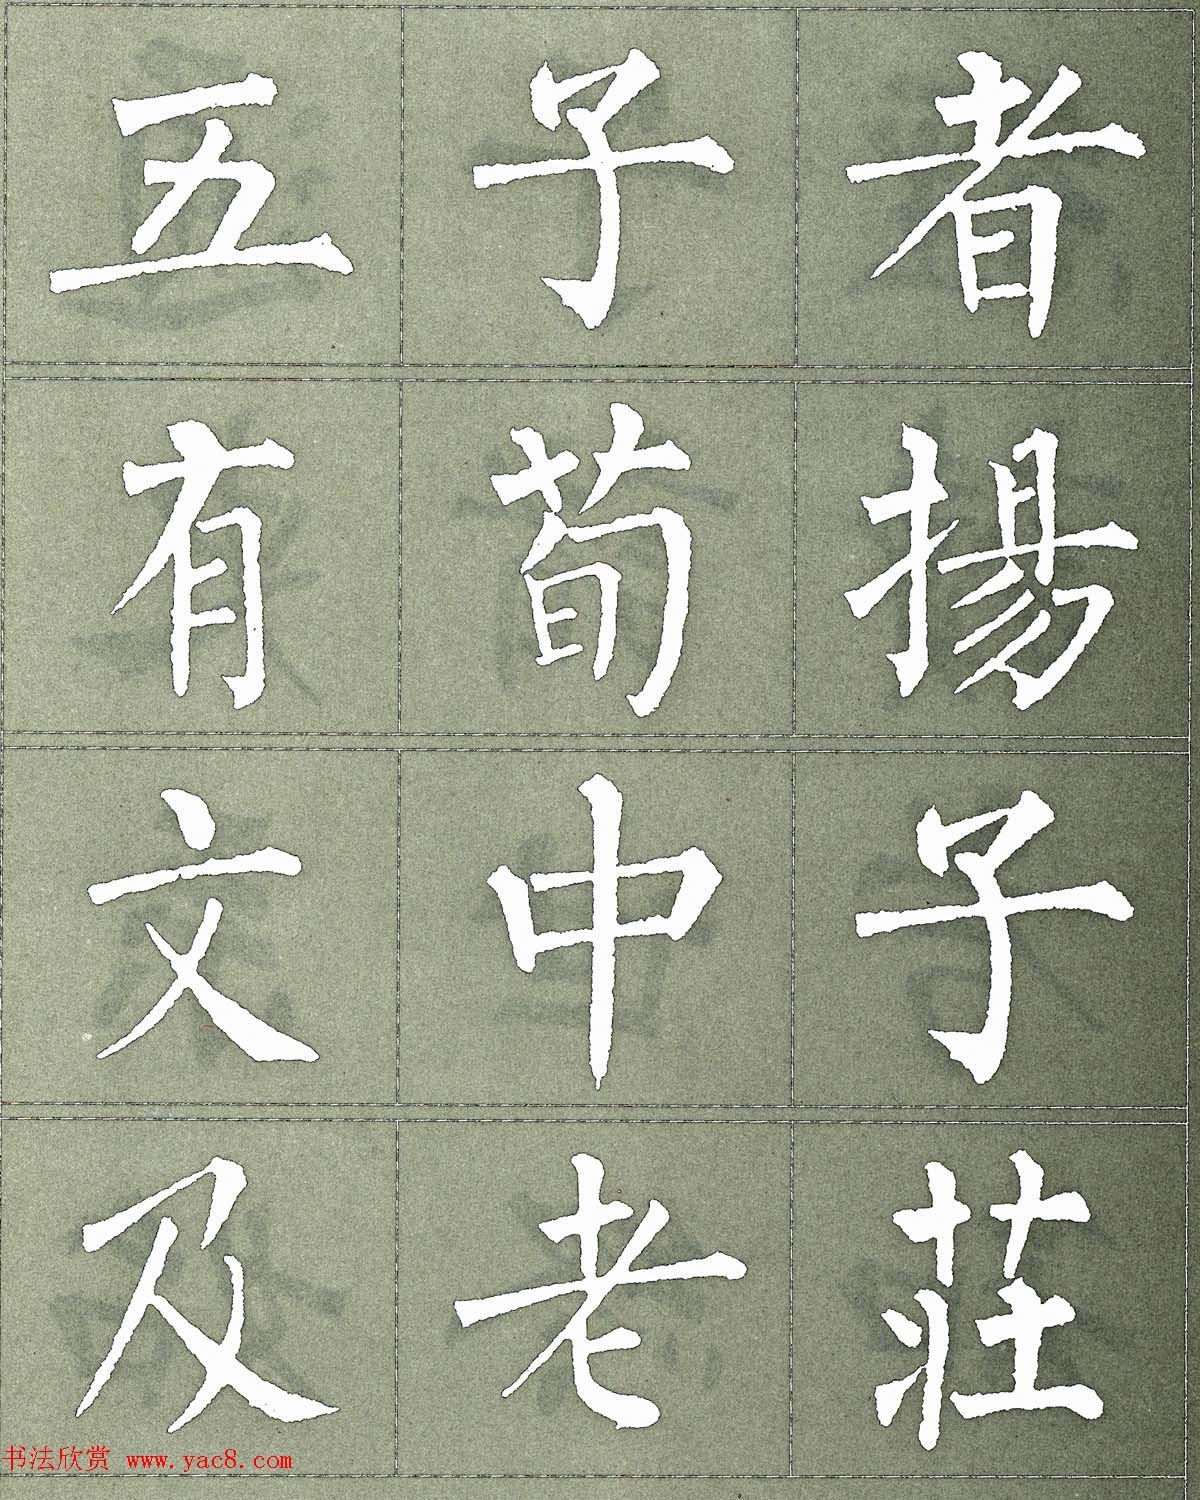 五子者
有荀揚
文中子
及老莊
书法欣赏 www.yac8.com